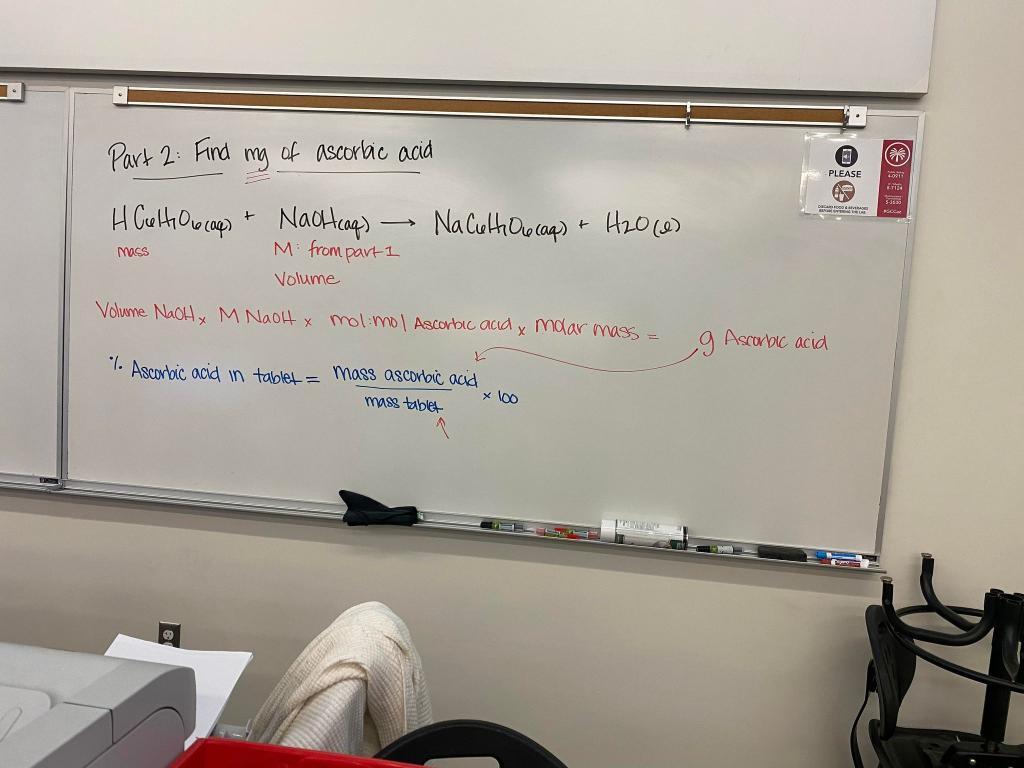 Part 2: Find mg of ascorbic acid
HC6H7O6(aq) + NaOH(aq) → NaC6H7O6(aq) + H2O(l)
mass
M: from part 1
Volume
Volume NaOH x M NaOH x mol:mol Ascorbic acid x molar mass = g Ascorbic acid
% Ascorbic acid in tablet = mass ascorbic acid
mass tablet
x 100
PLEASE
DISCARD FOOD & BEVERAGES
BEFORE ENTERING THE LAB